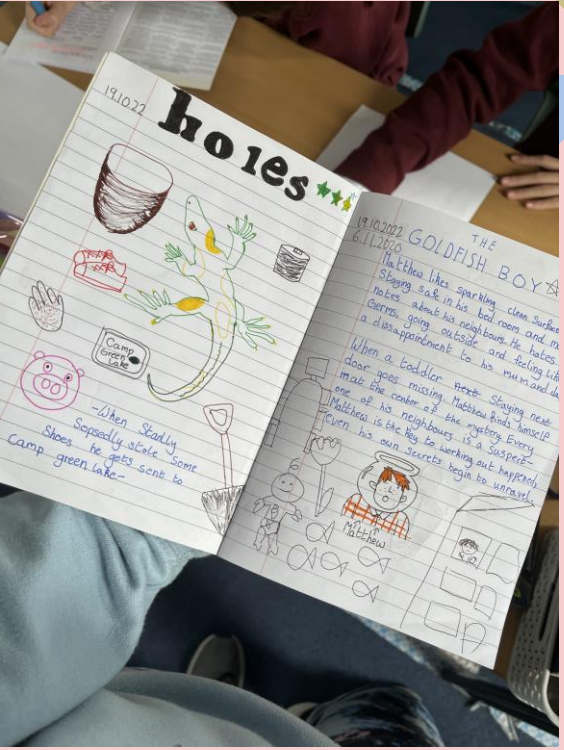 19.10.22
holes
Camp
Green
Lake
-When Stanly
Sopsedly stole Some
Shoes he gets sent to
Camp green lake-
19.10.2022
6.11.2020
THE
GOLDFISH BOY
Matthew likes sparkling clean Surface
Staying safe in his bed room and m
notes about his neighbours. He hates
Germs, going outside and feeling lik
a dissappointment to his mum and da
When a toddler Staying next
door goes missing. Matthew finds himself
at the center of the mystery. Every
one of his neighbours is a Suspect-
Matthew is the Key to working out happened,
Even his own secrets begin to unravel.
Matthew